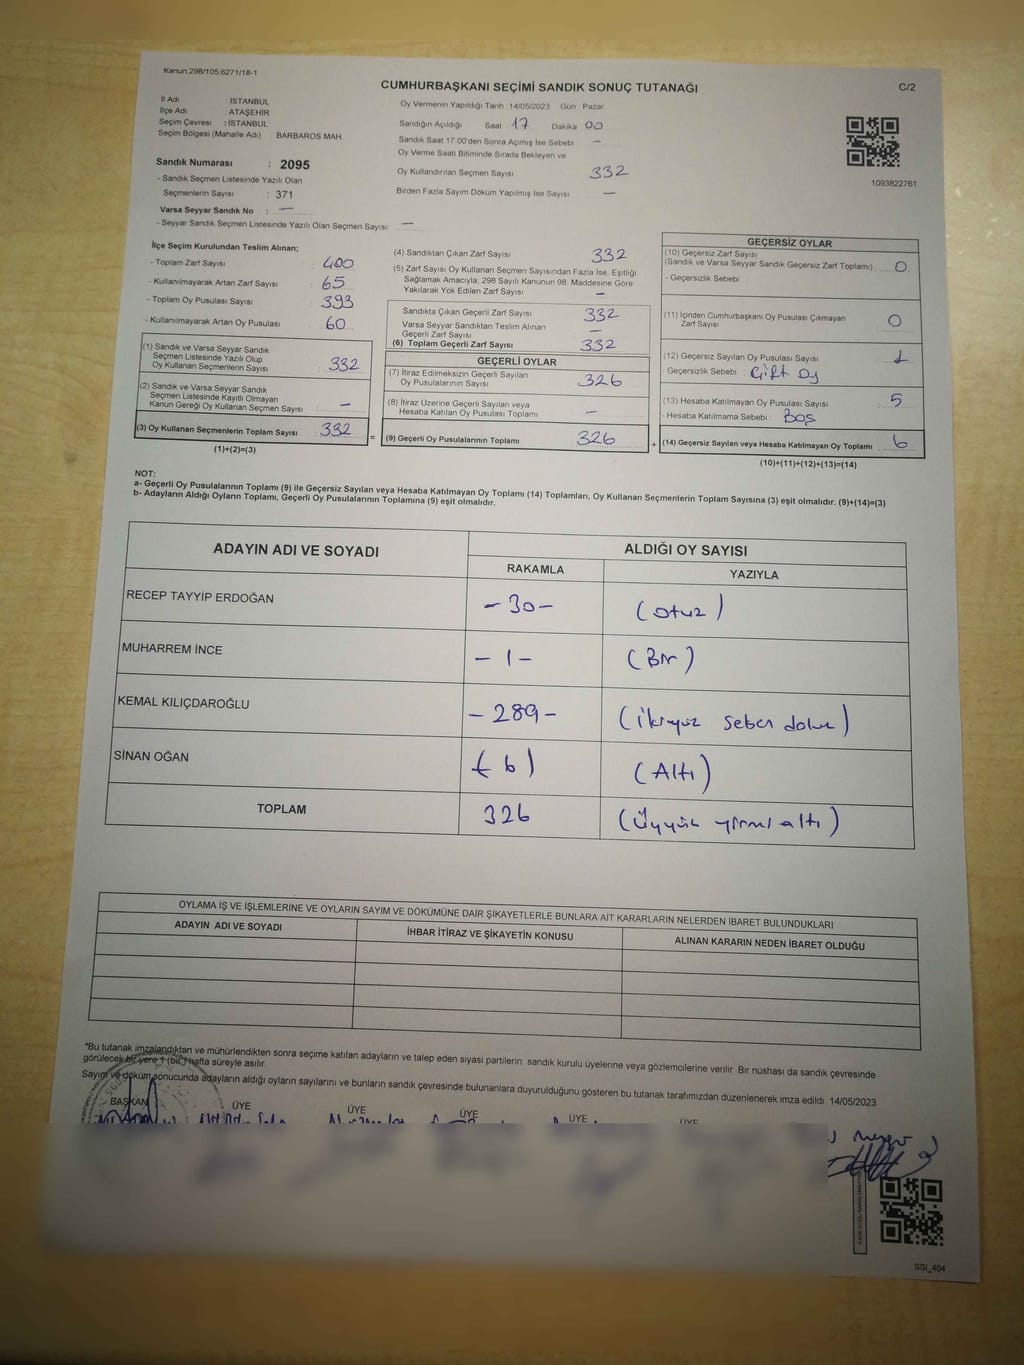 Kanun.298/105,6271/18-1
CUMHURBAŞKANI SEÇİMİ SANDIK SONUÇ TUTANAĞI
C/2
İl Adı İSTANBUL
İlçe Adı ATAŞEHİR
Seçim Çevresi : İSTANBUL
Seçim Bölgesi (Mahalle Adı) BARBAROS MAH.
Sandık Numarası : 2095
- Sandık Seçmen Listesinde Yazılı Olan
Seçmenlerin Sayısı : 371
Varsa Seyyar Sandık No : —
- Seyyar Sandık Seçmen Listesinde Yazılı Olan Seçmen Sayısı: —
Oy Vermenin Yapıldığı Tarih 14/05/2023 Gün Pazar
Sandığın Açıldığı Saat 17 Dakika 00
Sandık Saat 17:00'den Sonra Açımış İse Sebebi —
Oy Verme Saati Bitiminde Sırada Bekleyen ve
Oy Kullandırılan Seçmen Sayısı 332
Birden Fazla Sayım Döküm Yapılmış İse Sayısı —
1093822761
İlçe Seçim Kurulundan Teslim Alınan;
- Toplam Zarf Sayısı 400
- Kullanılmayarak Artan Zarf Sayısı 65
- Toplam Oy Pusulası Sayısı 393
- Kullanılmayarak Artan Oy Pusulası 60
(1) Sandık ve Varsa Seyyar Sandık
Seçmen Listesinde Yazılı Olup
Oy Kullanan Seçmenlerin Sayısı 332
(2) Sandık ve Varsa Seyyar Sandık
Seçmen Listesinde Kayıtlı Olmayan
Kanun Gereği Oy Kullanan Seçmen Sayısı —
(3) Oy Kullanan Seçmenlerin Toplam Sayısı 332
(1)+(2)=(3)
=
(4) Sandıktan Çıkan Zarf Sayısı 332
(5) Zarf Sayısı Oy Kullanan Seçmen Sayısından Fazla İse, Eşitliği
Sağlamak Amacıyla, 298 Sayılı Kanunun 98. Maddesine Göre
Yakılarak Yok Edilen Zarf Sayısı —
Sandıkta Çıkan Geçerli Zarf Sayısı 332
Varsa Seyyar Sandıktan Teslim Alınan
Geçerli Zarf Sayısı —
(6) Toplam Geçerli Zarf Sayısı 332
GEÇERLİ OYLAR
(7) İtiraz Edilmeksizin Geçerli Sayılan
Oy Pusulalarının Sayısı 326
(8) İtiraz Üzerine Geçerli Sayılan veya
Hesaba Katılan Oy Pusulası Toplamı —
(9) Geçerli Oy Pusulalarının Toplamı 326
+
GEÇERSİZ OYLAR
(10) Geçersiz Zarf Sayısı
(Sandık ve Varsa Seyyar Sandık Geçersiz Zarf Toplamı) 0
- Geçersizlik Sebebi
(11) İçinden Cumhurbaşkanı Oy Pusulası Çıkmayan
Zarf Sayısı 0
(12) Geçersiz Sayılan Oy Pusulası Sayısı 1
- Geçersizlik Sebebi Çift Oy
(13) Hesaba Katılmayan Oy Pusulası Sayısı 5
- Hesaba Katılmama Sebebi Boş
(14) Geçersiz Sayılan veya Hesaba Katılmayan Oy Toplamı 6
(10)+(11)+(12)+(13)=(14)
NOT:
a- Geçerli Oy Pusulalarının Toplamı (9) ile Geçersiz Sayılan veya Hesaba Katılmayan Oy Toplamı (14) Toplamları, Oy Kullanan Seçmenlerin Toplam Sayısına (3) eşit olmalıdır. (9)+(14)=(3)
b- Adayların Aldığı Oyların Toplamı, Geçerli Oy Pusulalarının Toplamına (9) eşit olmalıdır.
ADAYIN ADI VE SOYADI ALDIĞI OY SAYISI
RAKAMLA YAZIYLA
RECEP TAYYİP ERDOĞAN -30- (otuz)
MUHARREM İNCE -1- (Bir)
KEMAL KILIÇDAROĞLU -289- (ikiyüz seksen dokuz)
SİNAN OĞAN (6) (Altı)
TOPLAM 326 (Üçyüz yirmi altı)
OYLAMA İŞ VE İŞLEMLERİNE VE OYLARIN SAYIM VE DÖKÜMÜNE DAİR ŞİKAYETLERLE BUNLARA AİT KARARLARIN NELERDEN İBARET BULUNDUKLARI
ADAYIN ADI VE SOYADI İHBAR İTİRAZ VE ŞİKAYETİN KONUSU ALINAN KARARIN NEDEN İBARET OLDUĞU
*Bu tutanak imzalandıktan ve mühürlendikten sonra seçime katılan adayların ve talep eden siyasi partilerin sandık kurulu üyelerine veya gözlemcilerine verilir. Bir nüshası da sandık çevresinde
görülecek bir yere 1 (bir) hafta süreyle asılır.
Sayım ve döküm sonucunda adayların aldığı oyların sayılarını ve bunların sandık çevresinde bulunanlara duyurulduğunu gösteren bu tutanak tarafımızdan düzenlenerek imza edildi. 14/05/2023
BAŞKAN ÜYE ÜYE ÜYE ÜYE ÜYE
SSI_404